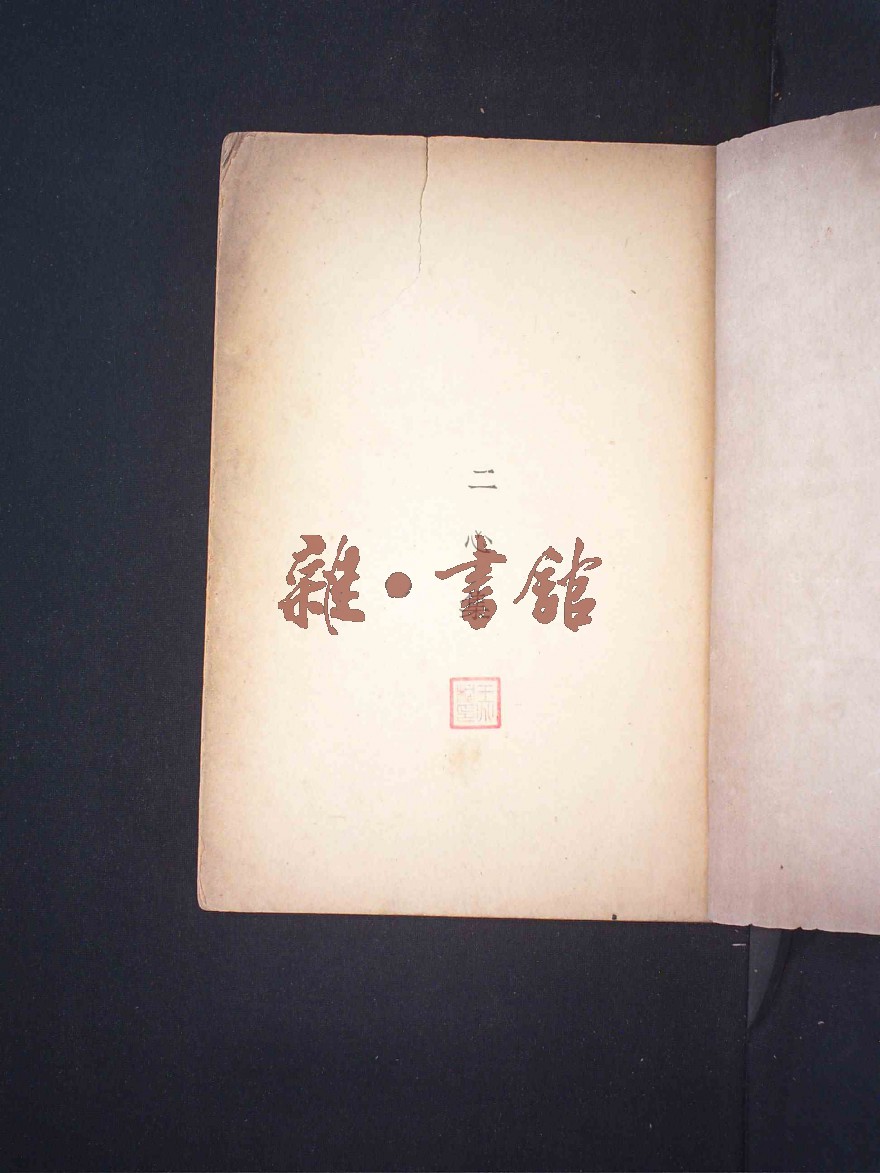 二心集
雜·書館